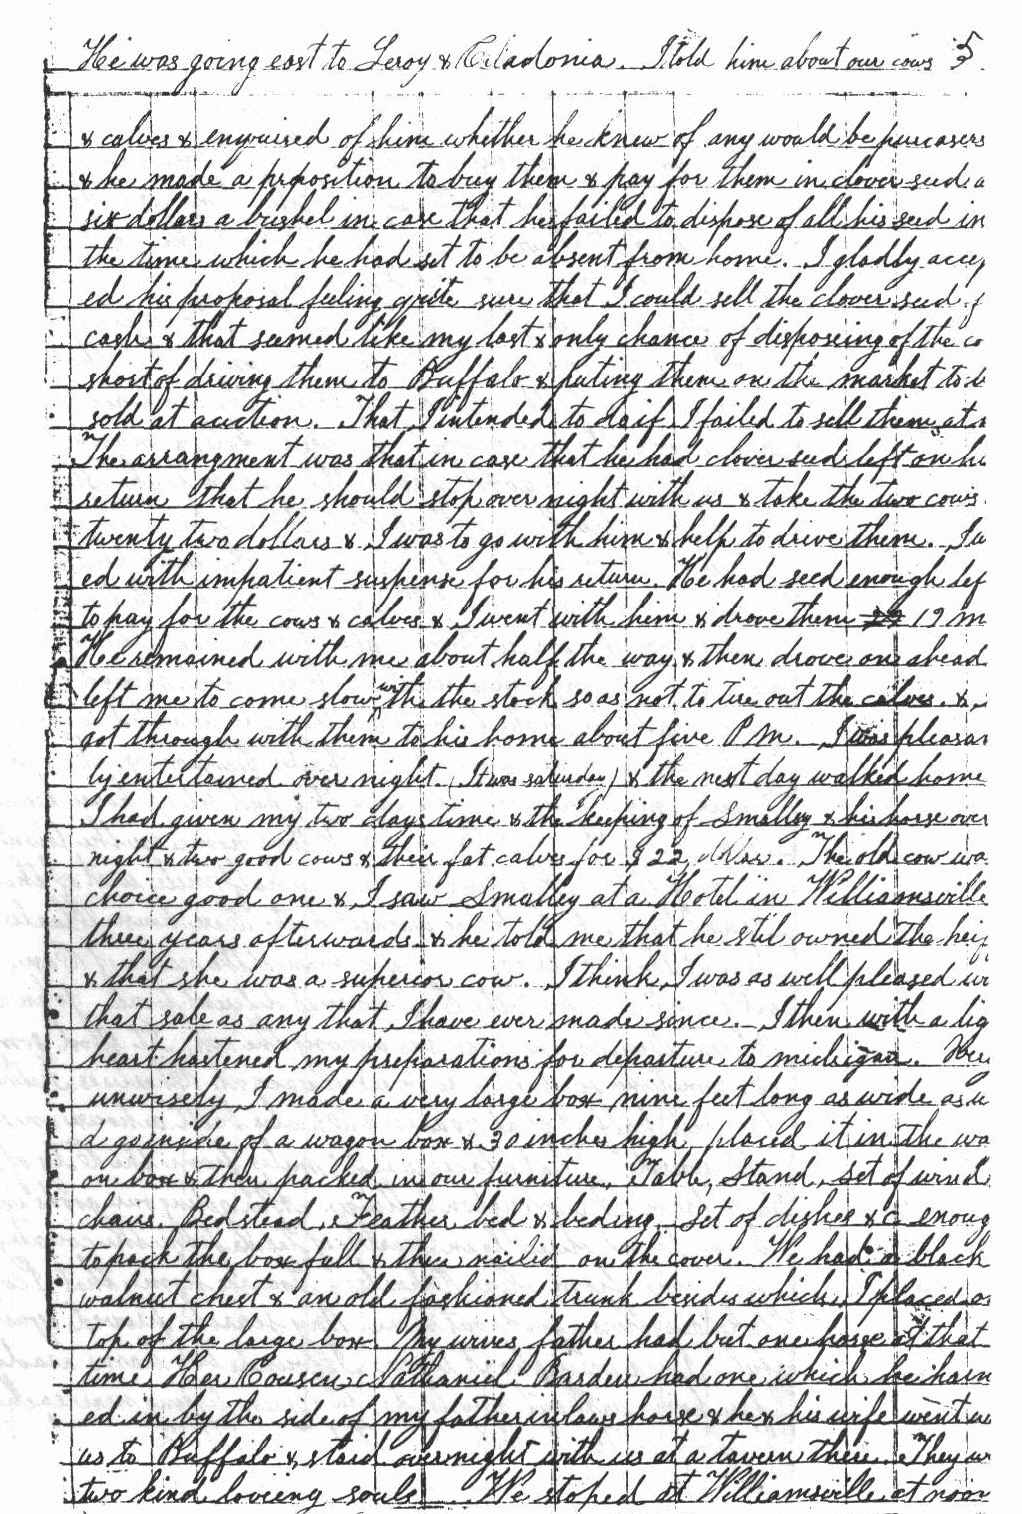 He was going east to Leroy & Caladonia. I told him about our cows 5
& calves & enquired of him whether he knew of any would be purcasers
& he made a prposition to buy them & pay for them in clover seed a
six dollars a bushel in case that he failed to dispose of all his seed in
the time which he had set to be absent from home. I gladly accep
ed his proposal feeling quite sure that I could sell the clover seed f
cash & that seemed like my last & only chance of disposeing of the co
short of driving them to Buffalo & puting them on the market to b
sold at auction. That I intended to do if I failed to sell them at
The arrangment was that in case that he had clover seed left on hi
return that he should stop over night with us & take the two cows
twenty two dollars & I was to go with him & help to drive them. I w
ed with impatient suspense for his return. He had seed enough lef
to pay for the cows & calves & I went with him & drove them 19 m
He remained with me about half the way & then drove on ahead
left me to come slow with the stock so as not to tire out the calves. &
got through with them to his home about five P m. I was pleasan
ly entertained over night. (It was saturday) & the next day walked home
I had given my two days time & the keeping of Smalley & his horse over
night & two good cows & their fat calves for $22 dollar. The old cow wa
choice good one & I saw Smalley at a Hotel in Williamsville
three years afterwards & he told me that he stil owned the heif
& that she was a superior cow. I think I was as well pleased wi
that sale as any that I have ever made since. I then with a lig
heart hastened my preparations for departure to michigan. Very
unwisely I made a very large box nine feet long as wide as w
d go inside of a wagon box & 30 inches high placed it in the wa
on box & then packed in our furniture, Table, Stand, set of wind
chairs. Bedstead, Feather bed & beding, set of dishes & c enoug
to pack the box full & then nailed on the cover. We had a black
walnut chest & an old fashioned trunk besides which I placed on
top of the large box. My wives father had but one horse at that
time. Her Cousen Nathaniel Barden had one which he harn
ed in by the side of my father in laws horse & he & his wife went w
us to Buffalo & staid overnight with us at a tavern there. They w
two kind loveing souls. We stoped at Williamsville at noon